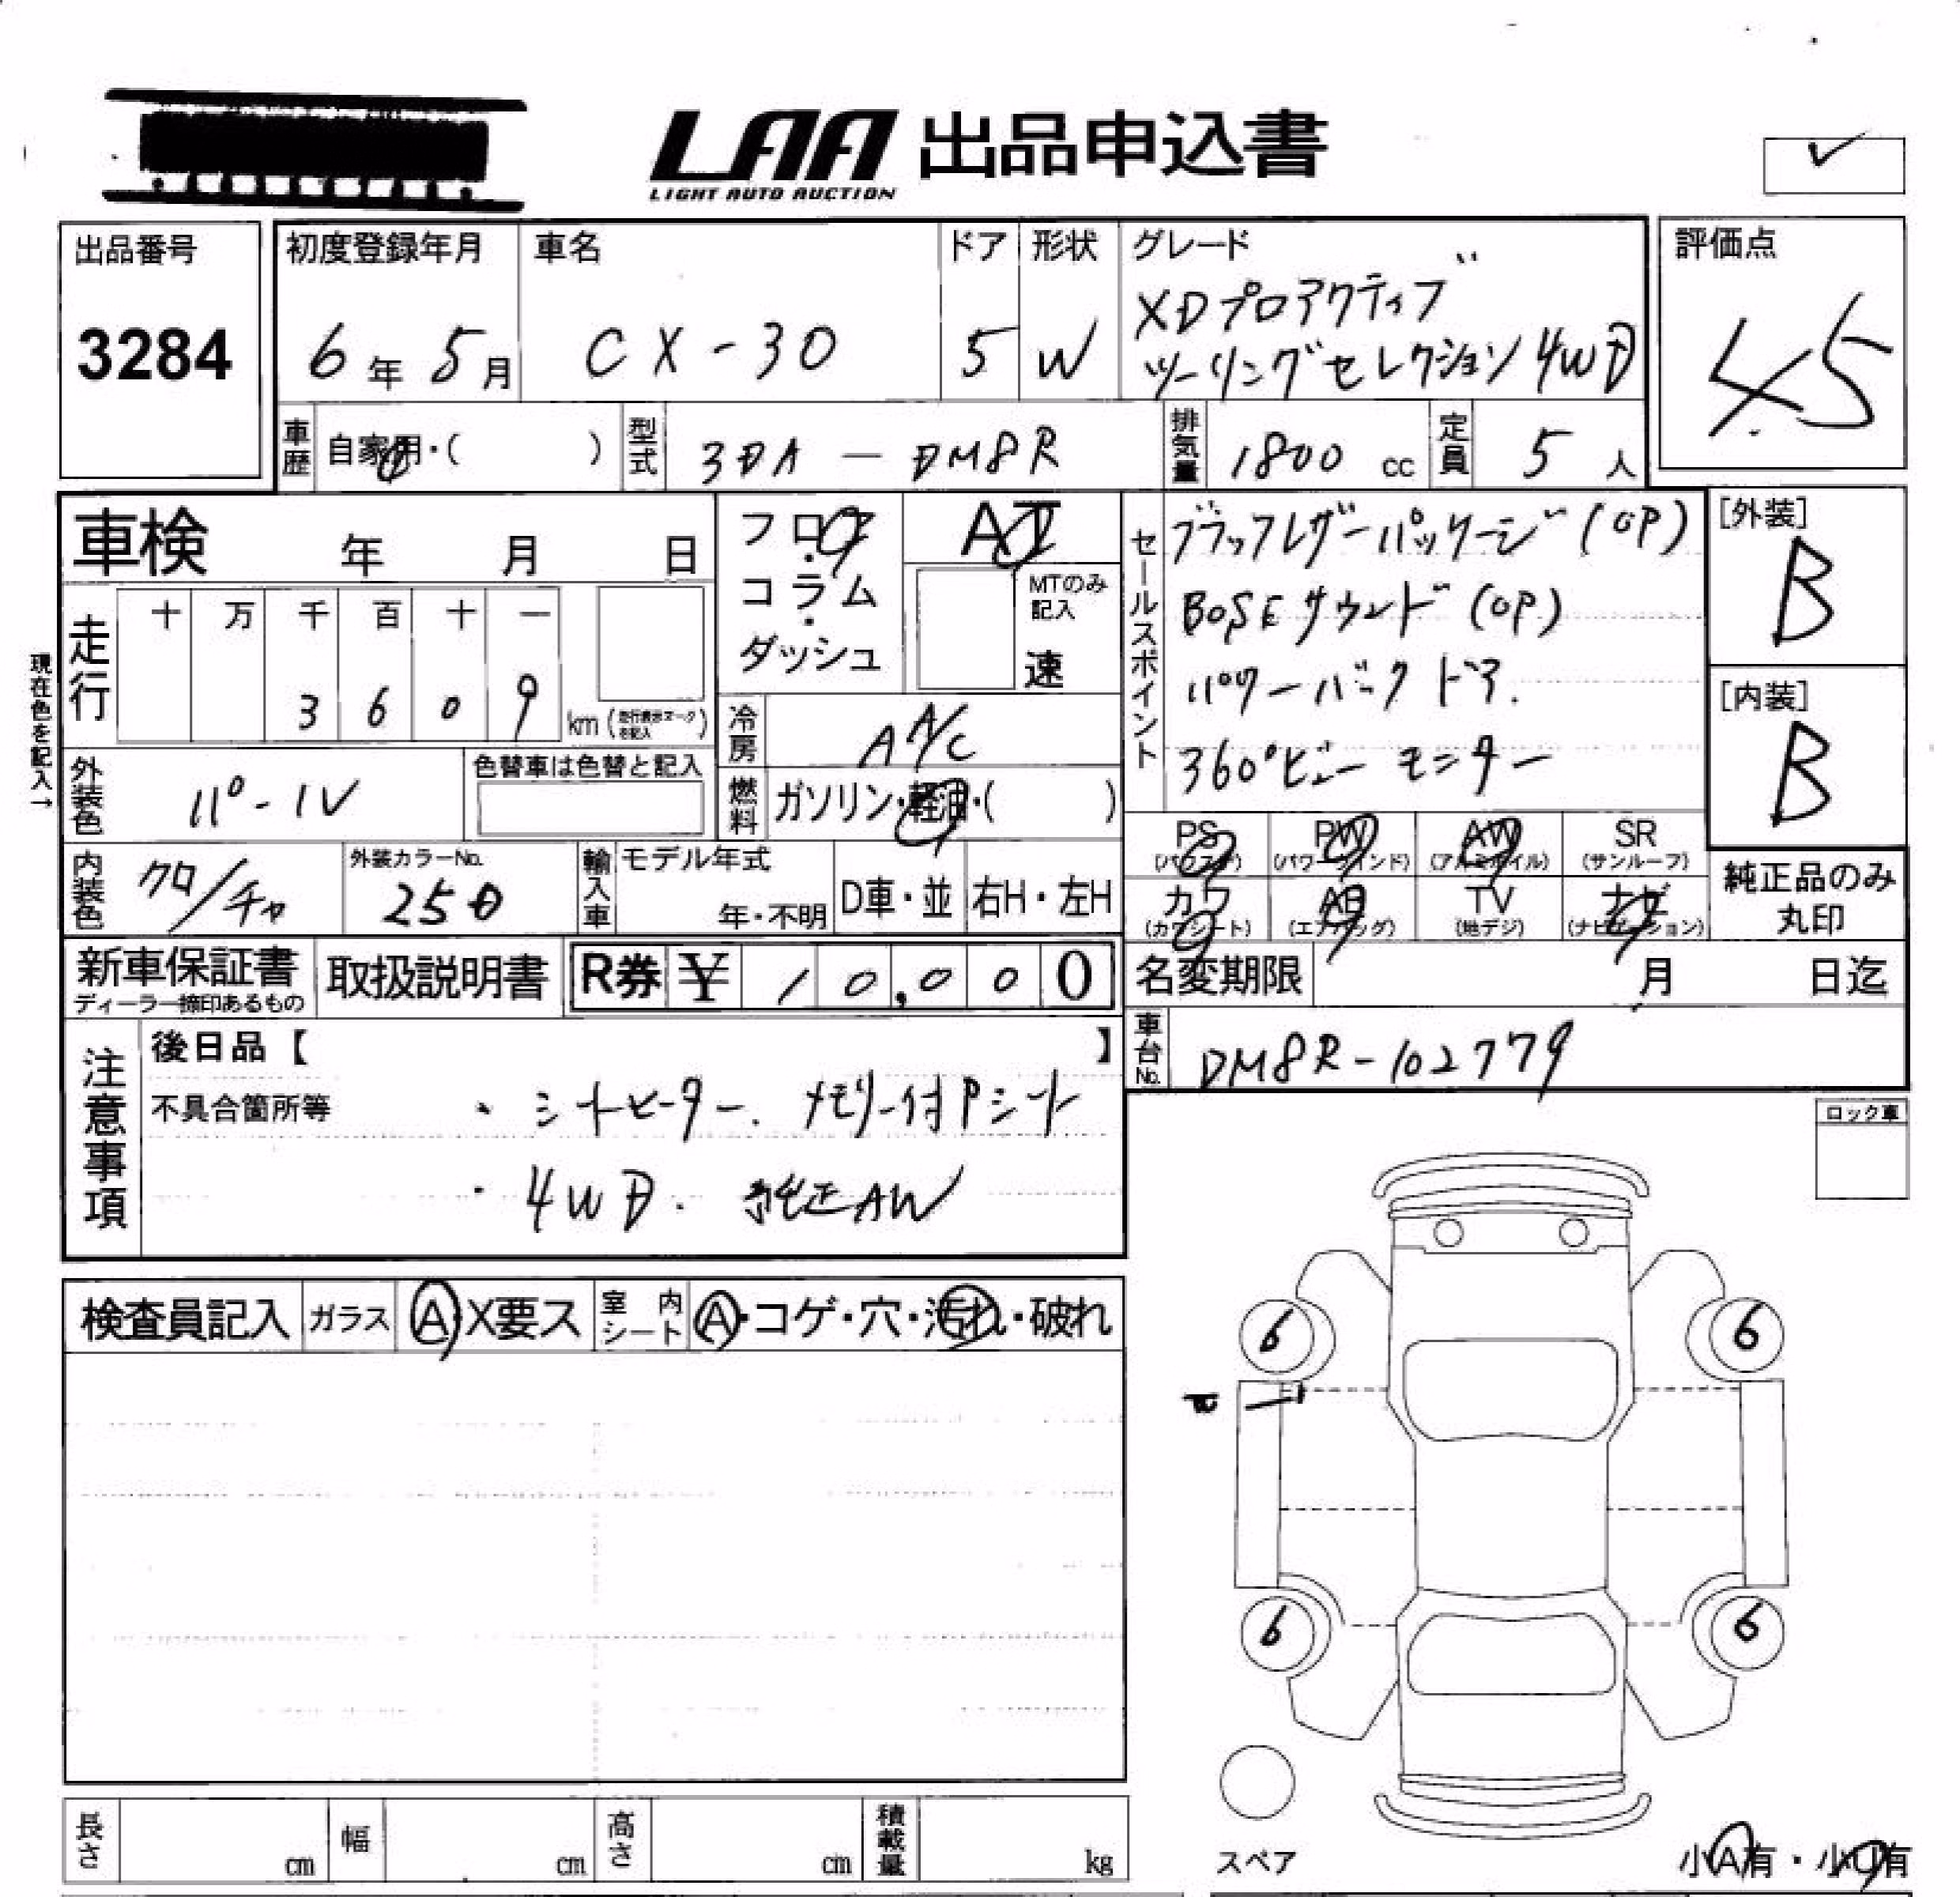 LAA 出品申込書
LIGHT AUTO AUCTION
出品番号
3284
初度登録年月
6年 5月
車名
CX-30
ドア
5
形状
W
グレード
XDプロアクティブ
ツーリングセレクション4WD
評価点
4.5
車歴
自家用・( )
型式
3DA — DM8R
排気量
1800 cc
定員
5 人
車検 年 月 日
フロア
・
コラム
・
ダッシュ
AT
MTのみ
記入
速
現在色を記入→
走行
十 万 千 百 十 一
3 6 0 9
km (走行表示マーク
を記入)
冷房
AA/C
外装色
パ-ルV
色替車は色替と記入
燃料
ガソリン・軽油・( )
内装色
クロ/チャ
外装カラーNo.
25D
輸入車
モデル年式
年・不明
D車・並
右H・左H
新車保証書
ディーラー捺印あるもの
取扱説明書
R券 ¥ 10,000
セールスポイント
ブラックレザーパッケージ(OP)
BOSEサウンド(OP)
パワーバックドア.
360°ビューモニター
[外装]
B
[内装]
B
PS
(パワステ)
PW
(パワーウインド)
AW
(アルミホイル)
SR
(サンルーフ)
カワ
(カワシート)
AB
(エアバッグ)
TV
(地デジ)
ナビ
(ナビゲーション)
純正品のみ
丸印
名変期限 月 日迄
車台No.
DM8R-102779
注意事項
後日品【 】
不具合箇所等
・シートヒーター. メモリー付Pシート
・4WD. 純正AW
ロック車
検査員記入
ガラス
A・X要ス
室内
シート
A・コゲ・穴・汚れ・破れ
6
6
6
6
スペア
小A有・小U有
長さ cm
幅 cm
高さ cm
積載量 kg